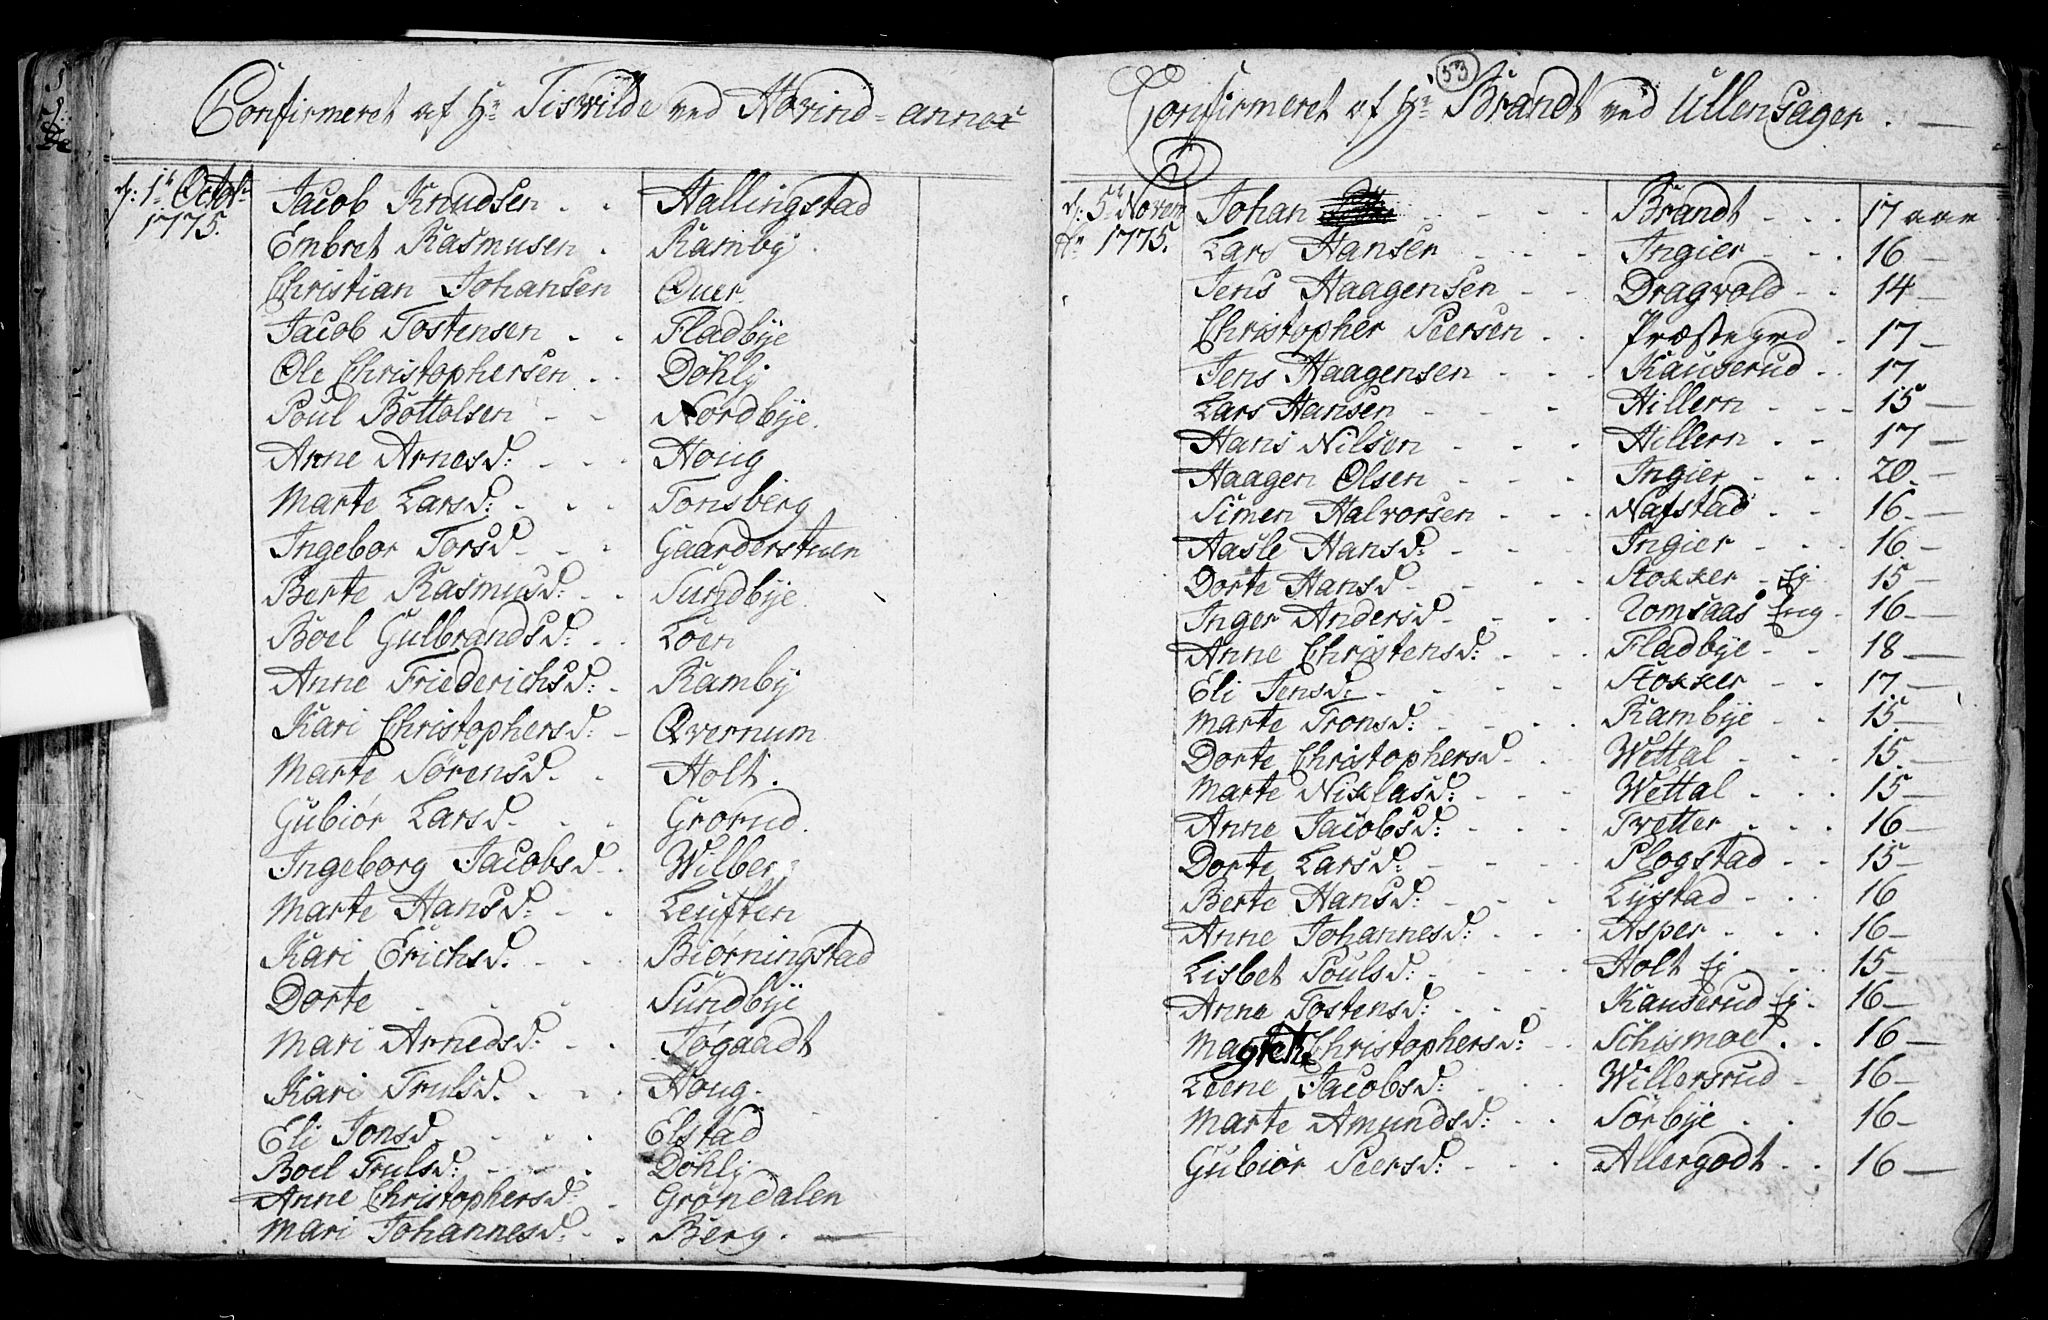 Confirmeret af Hr Tisvilde ved Hovind = annex
d: 1te Octobr Jacob Knudsen - - Hallingstad
1775. Embret Rasmusen - Ramby
Christian Johansen Quer
Jacob Tostensen - - Fladbye
Ole Christophersen - - Döhly
Poul Bottolsen - - Nordbye
Anne Arnesd: - - - Houg
Marte Larsd: - - - Tonsberg
Ingebor Torsd - - - Gaarderstuen
Berte Rasmusd: - - Sundbye
Boel Gulbrandsd: - - Loen
Anne Friederichsd: - Ramby
Kari Christophersd: - Qvernum
Marte Sörensd - - Holt.
Gubiör Larsd - - - Grorud.
Ingeborg Jacobsd - - Wilber
Marte Hansd: - - Leuften
Kari Erichsd: - - - Biörningstad
Dorte - - - Sundbye
Mari Arnedsd: - - Jögaadt
Kari Trulsd. - - - Houg.
Eli Jonsd - - - - Elstad
Boel Trulsd: - - - Döhly
Anne Christophersd: - Gröndalen
Mari Johannesd: - - Berg. —
53
Confirmeret af Hr Brandt ved Ullensager. —
d: 5te Novem Johan - - - - Brandt - - - 17 aar
Ao 1775. Lars Hansen - - - Ingier - - - 16 —
Jens Haagensen - - Dragvold - - 14 —
Christopher Peersen - - Præstegrd - 17 —
Jens Haagensen - - - Kauserud - - 17
Lars Hansen - - - Hillern - - - 15 —
Hans Nilsen - - - Hillern - - 17 —
Haagen Olsen - - - Ingier - - - 20. —
Simen Halvorsen - - - Nafstad - - 16. —
Aasle Hansd: - - - Ingier - - - 16. —
Dorte Hansd - - - Stokker - Ej 15 —
Inger Andersd - - - Romsaas Eng - 16. —
Anne Christensd: - - - Fladbye - - 18 —
Eli Jensd: - - - - Stokker - - 17. —
Marte Tronsd: - - - - Rambye - - 15. —
Dorte Christophersd - - - Wettal - - - 15. —
Marte Niklasd: - - - Wettal - - - 15 —
Anne Jacobsd: - - - Tvetter - - - 16 —
Dorte Larsd: - - - - Plogstad - - 15 —
Berte Hansd: - - - Lystad - - - 16
Anne Johannesd: - - - Asper - - - 16 —
Lisbet Poulsd: - - - - Holt Ej - - 15 —
Anne Tostensd: - - - Kauserud Ej - 16 —
Magrethe Christophersd: - - Schismoe - - 16 —
Leene Jacobsd: - - - Willersrud - 16 —
Marte Amundsd: - - Sörbye - - 16 —
Gubiör Peersd: - - - Allergodt - - 16 —